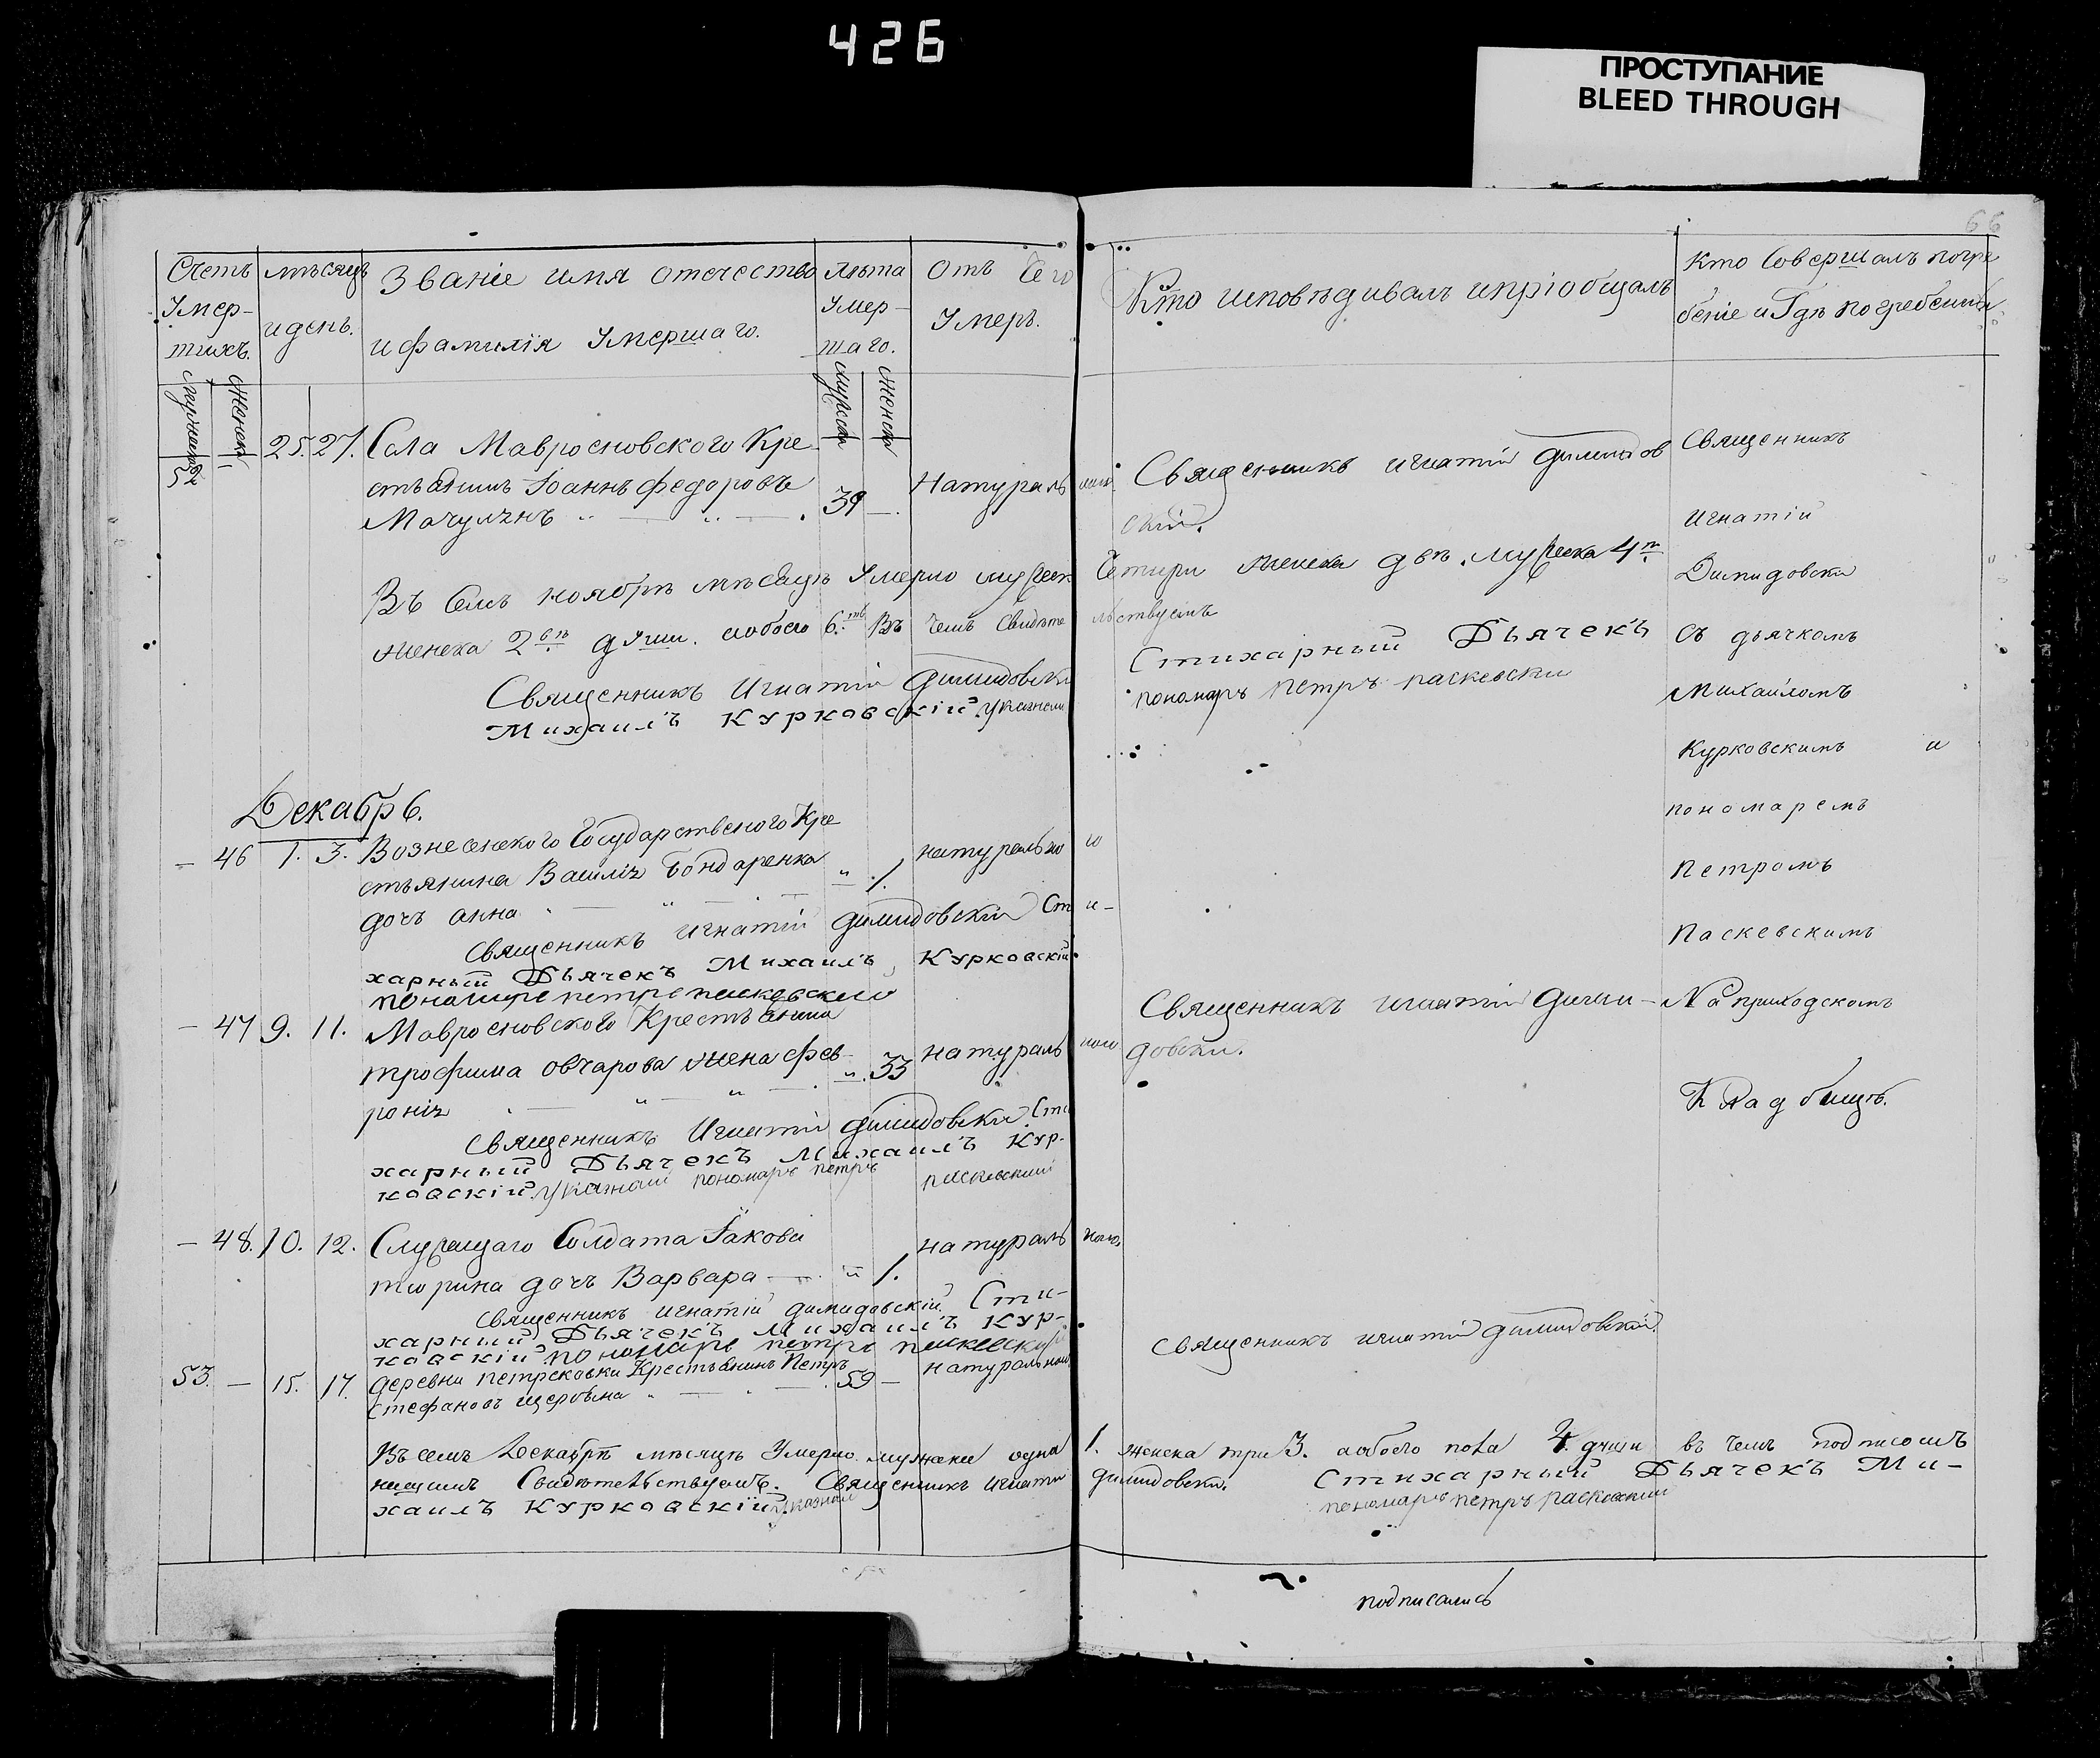 426
ПРОСТУПАНИЕ
BLEED THROUGH
66
Счетъ Умер-шихъ.
мужеск женск
мѣсяцъ и день.
Званіе имя отечество и фамилія Умершаго.
Лѣта Умер-шаго.
мужеск женск
Отъ Чего Умеръ.
Кто исповѣдивалъ и пріобщалъ
Кто Совершалъ погре
беніе и Гдѣ погребенны
52 25. 27. Села Мавросновского Кре
стьянинъ Іоаннъ федоровъ
Мачулинъ 39 — Натураль ною
Священникъ игнатій димидов
скій.
Въ Семъ ноябрѣ мѣсяцѣ Умерло мужеск Четири женска двѣ. мужеска 4ре
женска 2вѣ души. обоего 6.ть Въ Чемъ Свидѣте льствуемъ
Священникъ Игнатій димидовски Стихарный Дьячекъ
Михаилъ Курковскій. указном пономаръ петръ паскевски
Священникъ
игнатій
Димидовски
Съ дьячкомъ
Михаиломъ
Курковскимъ и
пономаремъ
Петромъ
Паскевскимъ
На приходскомъ
Кладбищѣ.
Декабрь.
— 46 1. 3. Вознесенского Государственого Кре
стьянина Василія Бондаренка
дочъ анна " 1. натурально ю
Священникъ игнатій димидовскій Сти-
харный Дьячекъ Михаилъ Курковскій
пономаре петре паскевскию
— 47 9. 11. Мавросновского Крестьянина
трофима овчарова жена фев-
ронія " 33 натураль ною
Священникъ игнатій дими-
довски.
Священникъ Игнатій димидовски. Сти
харный Дьячекъ Михаилъ Кур-
ковскій. указный пономаръ петръ паскевский
— 48. 10. 12. Служащаго Солдата Іакова
тюрина дочъ Варвара — " 1. натураль ною.
Священникъ игнатій димидовскій. Сти-
харный Дьячекъ Михаилъ Кур-
ковскій пономаре петре паскевский
53. — 15. 17. деревни петрековки Крестьянинъ Петръ
Стефановъ щербина 59 — натуральною
Священникъ игнатій димидовскій.
Въ семъ Декабрѣ мѣсяцѣ Умерло мужска одна 1. женска три 3. аобоего пола 4. души въ чемъ подписомъ
нашимъ Свидѣтельствуемъ. Священникъ игнати димидовски. Стихарный Дьячекъ Ми-
хаилъ Курковскій. указный пономаръ петръ Расковский
подписались